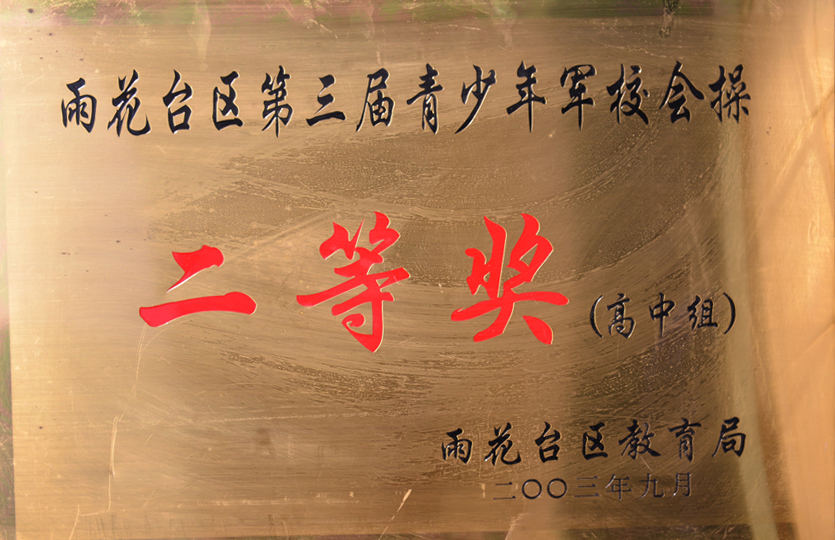 雨花台区第三届青少年军校会操
二等奖(高中组)
雨花台区教育局
二〇〇三年九月